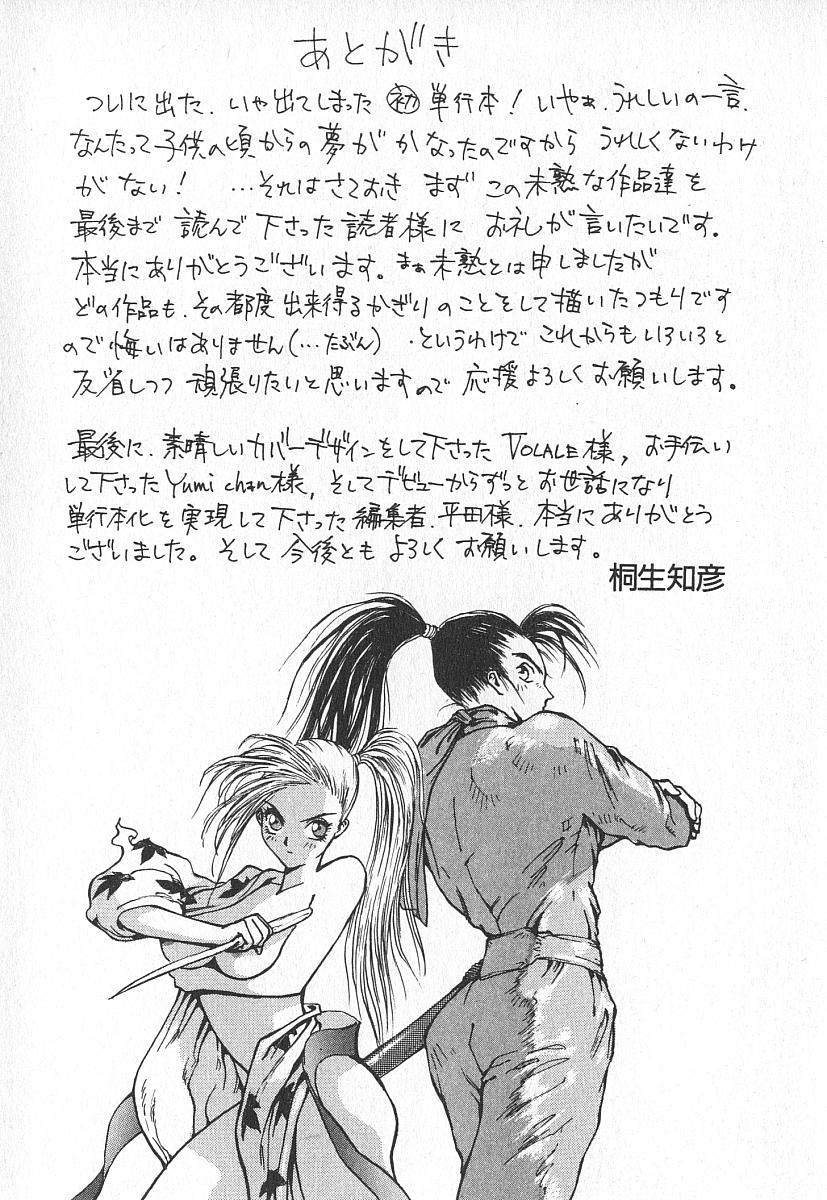 あとがき
ついに出た、いや出てしまった㊙初単行本！いやぁ、うれしいの一言、
なんたって子供の頃からの夢がかなったのですから うれしくないわけ
がない！ …それはさておき まず この未熟な作品達を
最後まで 読んで下さった読者様に お礼が言いたいです。
本当にありがとうございます。まぁ未熟とは申しましたが
どの作品も、その都度出来得るかぎりのことをして描いたつもりです
ので悔いはありません(…たぶん) ・というわけで これからもいろいろと
反省しつつ 頑張りたいと思いますので 応援よろしくお願いします。
最後に、素晴しいカバーデザインをして下さった VOLALE様, お手伝い
して下さったYumi chan様, そしてデビューからずっと お世話になり
単行本化を実現して下さった編集者、平田様、本当にありがとう
ございました。そして 今後とも よろしくお願いします。
桐生知彦